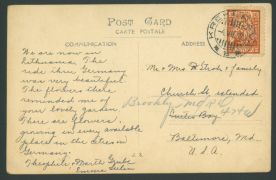 POST CARD
CARTE POSTALE
COMMUNICATION
ADDRESS
We are now in
Lithuania. The
ride thru Germany
was very beautiful
The flowers there
reminded me of
your lovely garden.
There are flowers
growing in every available
place in the streets in
Germany.
Theophile + Marth
Mr + Mrs + family
Church St extended
Brooklyn
Curtis Bay
Baltimore, Md
U S A